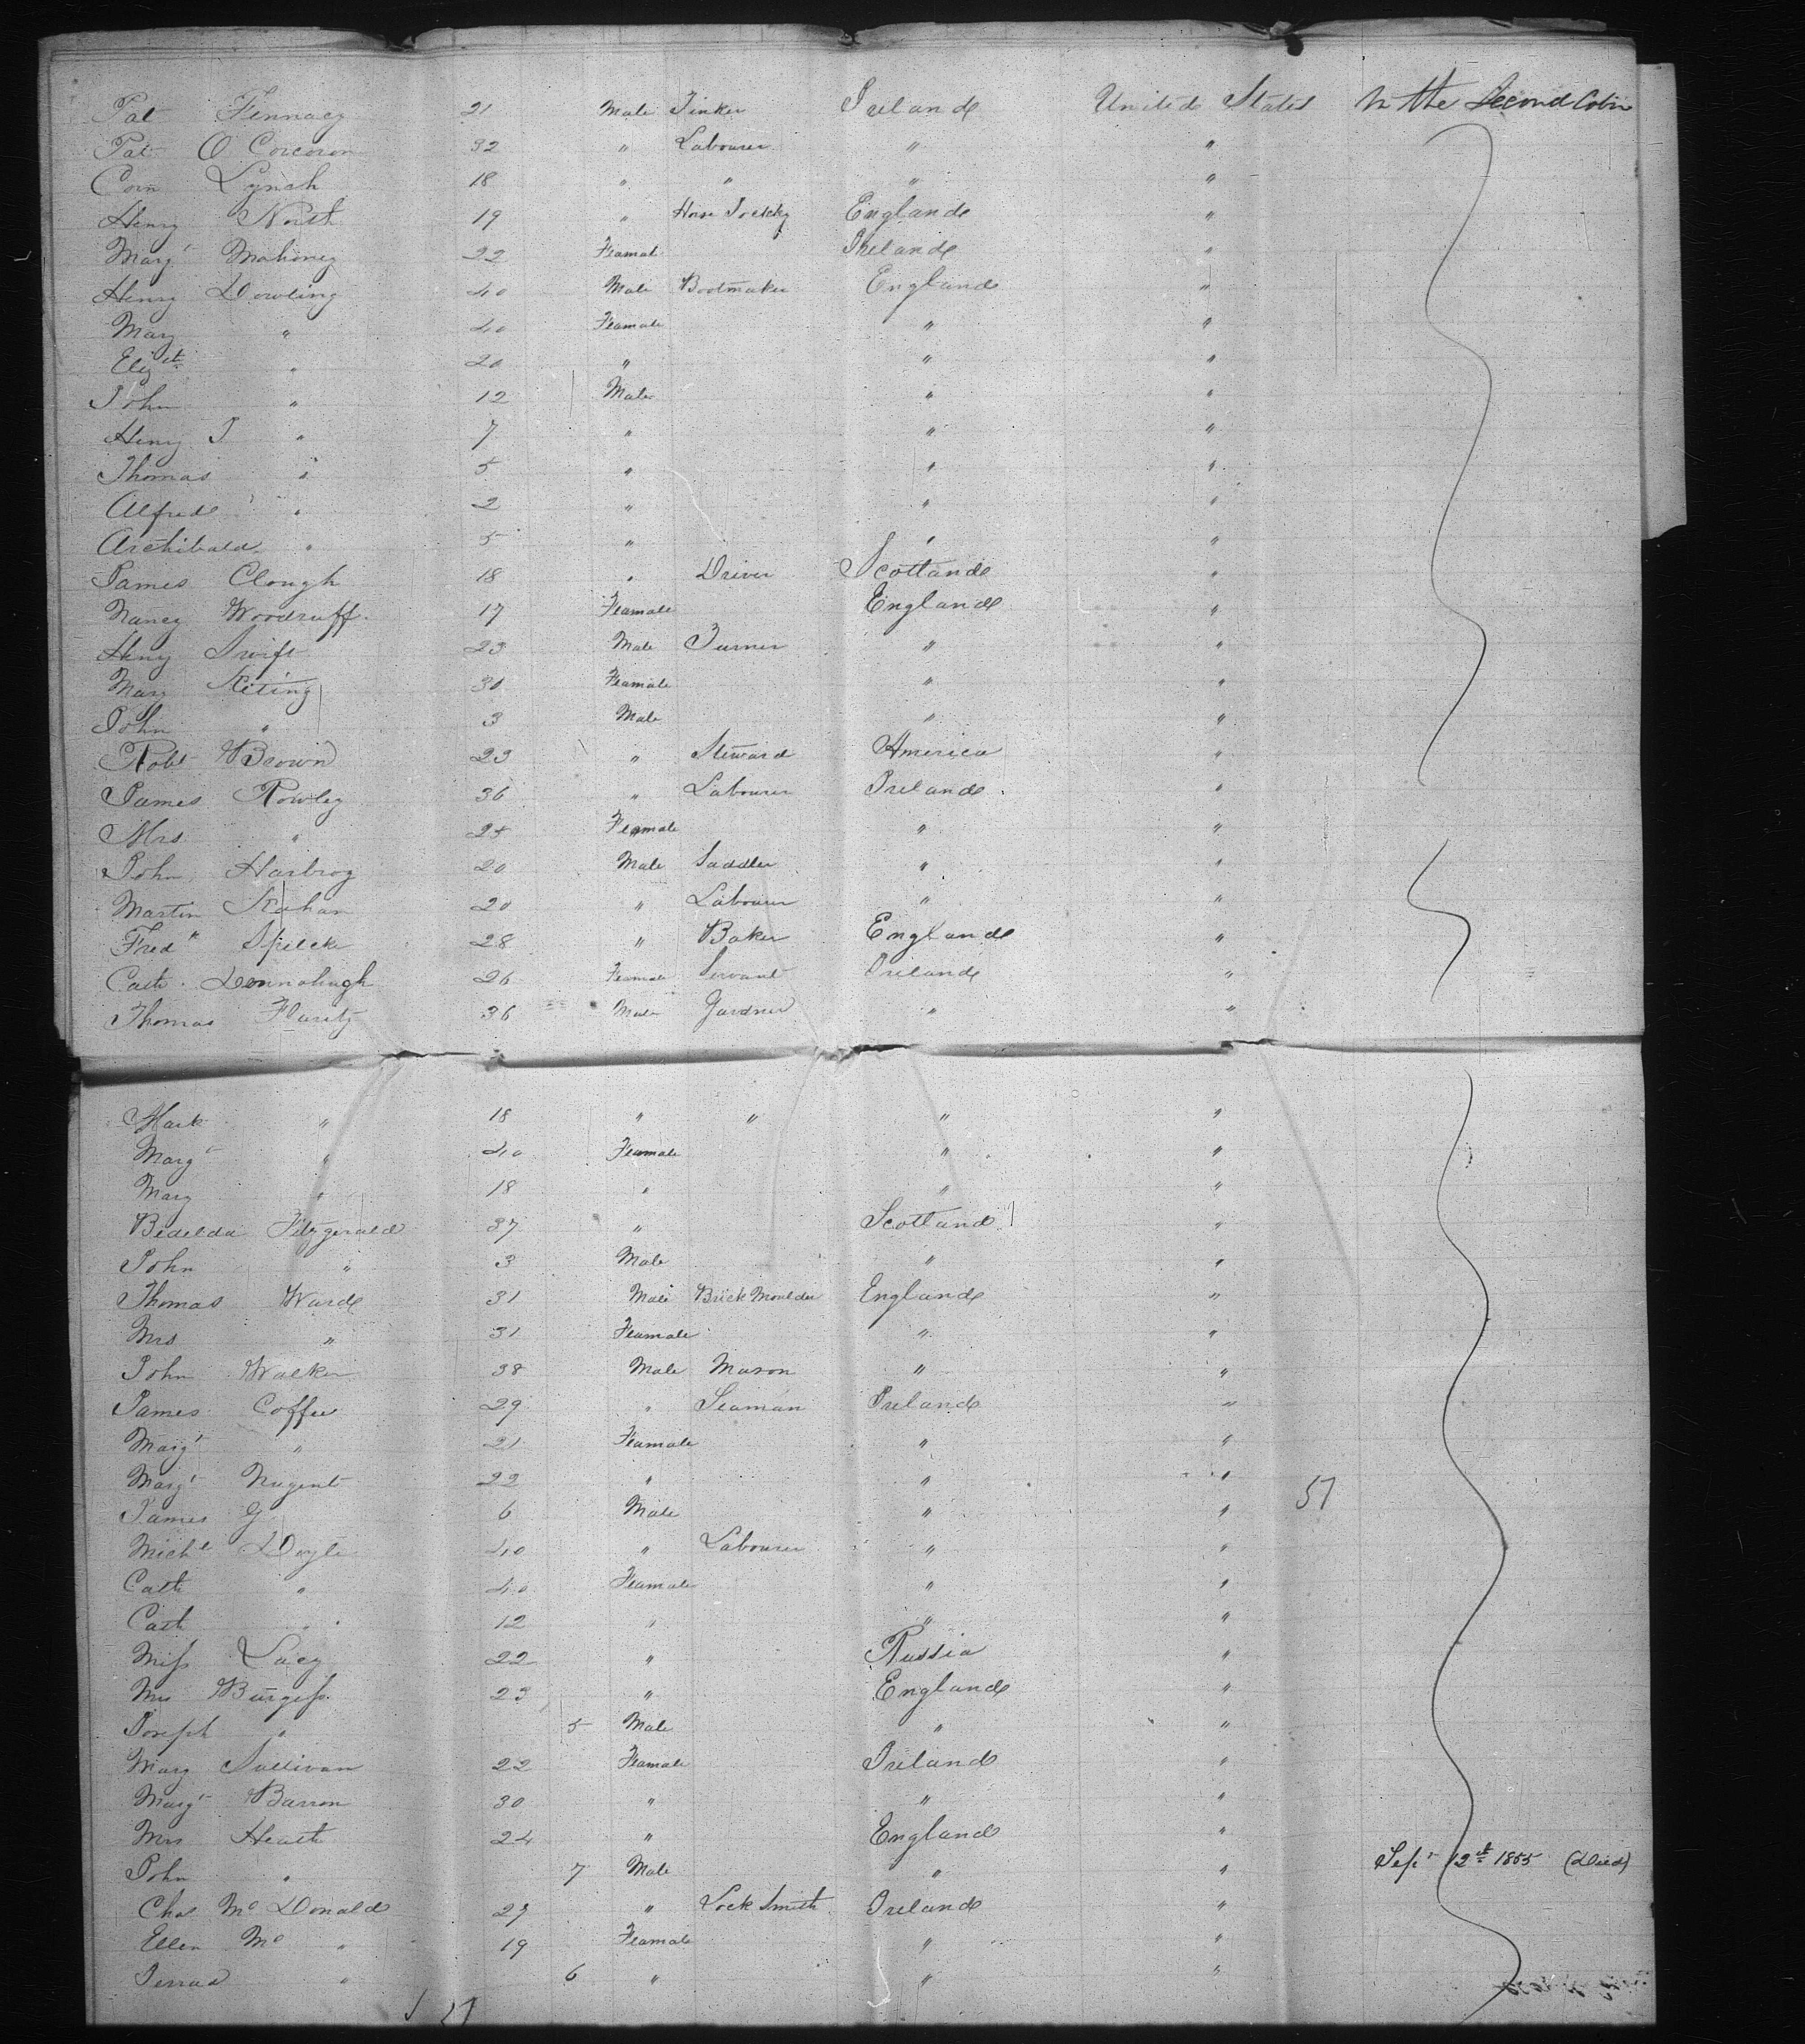 Pat Finnacy 21 Male Tinker Ireland United States In the Second Cabin
Pat O Corcoron 32 " Labourer " "
Corn Lynch 18 " " " "
Henry North 19 " Horse Jockky England "
Margt Mahoney 22 Feamal Ireland "
Henry Dowling 40 Male Bootmaker England "
Mary " 40 Feamale " "
Elizth " 20 " " "
John " 12 Male " "
Henry J " 7 " " "
Thomas " 5 " " "
Alfred " 2 " " "
Archibald " 5 " " "
James Clough 18 " Driver Scotland "
Nancy Woodruff 17 Feamale England "
Heny Swift 23 Male Turner " "
Mary Keting 30 Feamale " "
John " 3 Male " "
Robt Brown 23 " Steward America "
James Rowley 36 " Labourer Ireland "
Mrs " 25 Feamale " "
John Harbroy 20 Male Saddler " "
Martin Kahan 20 " Labourer " "
Fredk Spelck 28 " Baker England "
Cath Donnahugh 26 Feamale Servant Ireland "
Thomas Flarity 36 Male Gardner " "
Mark " 18 " " " "
Margt " 40 Feamale " "
Mary " 18 " " "
Bedelda Fitzgerald 37 " Scotland "
John " 3 Male " "
Thomas Ward 31 Male Brick Moulder England "
Mrs " 31 Feamale " "
John Walker 38 Male Mason " "
James Coffee 29 " Seaman Ireland "
Margt " 21 Feamale " "
Margt Nugent 22 " " " 57
James G 6 Male " "
Michl Doyle 40 " Labourer " "
Cath " 40 Feamale " "
Cath " 12 " " "
Miss Lacy 22 " Russia "
Mrs Burgess 23 " England "
Joseph " 5 Male " "
Mary Sullivan 22 Feamale Ireland "
Margt Barron 30 " " "
Mrs Heath 24 " England "
John " 7 Male " " Sept 12th 1855 (Died)
Chas Mc Donald 27 " Lock Smith Ireland "
Ellen Mc " 19 Feamale " "
" 6 " " "